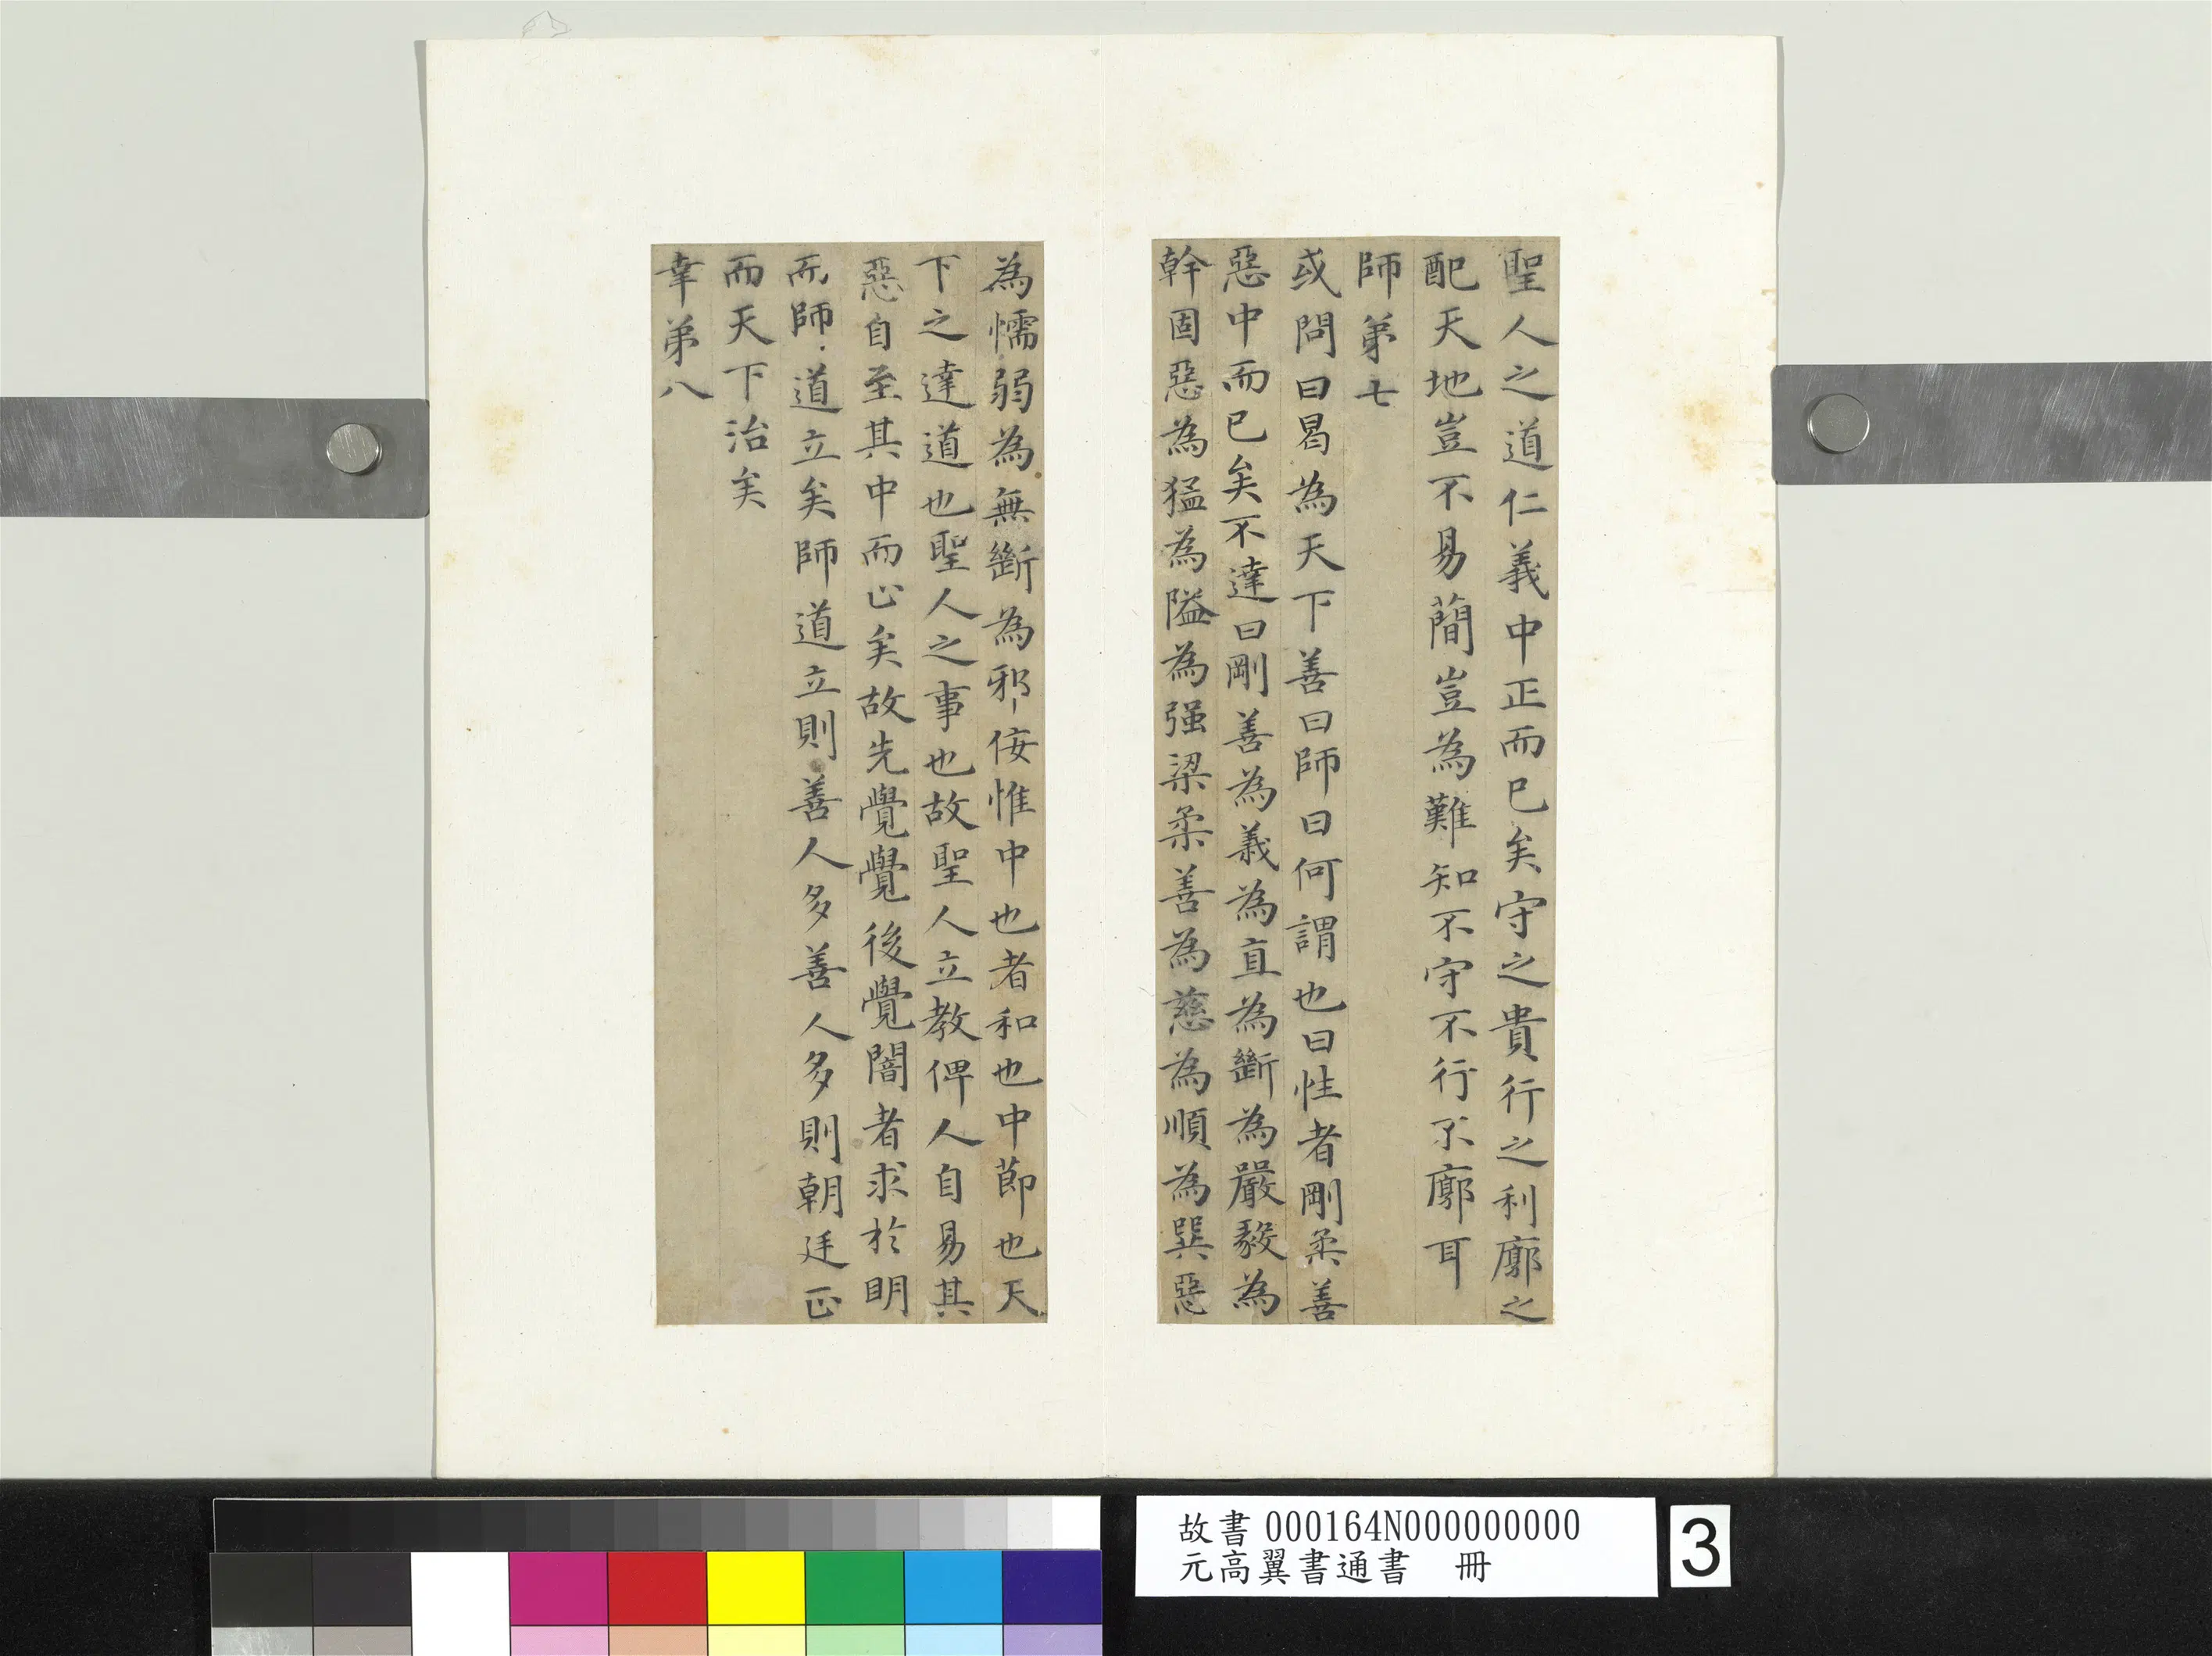 聖人之道仁義中正而已矣守之貴行之利廓之
配天地豈不易蕳豈為難知不守不行不廓耳
師弟七
或問曰曷為天下善曰師曰何謂也曰性者剛柔善
惡中而已矣不達曰剛善為義為直為斷為嚴毅為
幹固惡為猛為隘為强梁柔善為慈為順為巽惡
為懦弱為無斷為邪佞惟中也者和也中節也天
下之達道也聖人之事也故聖人立教俾人自易其
惡自至其中而止矣故先覺覺後覺闇者求於明
而師道立矣師道立則善人多善人多則朝廷正
而天下治矣
幸弟八
故書 000164N000000000
元高翼書通書 冊
3